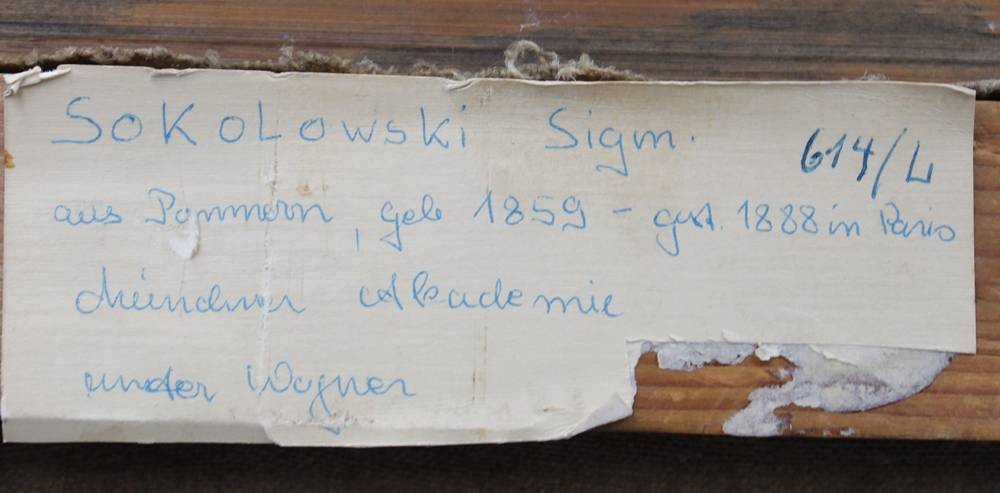 SOKOLOwski Sigm. 614/L
aus Pommern, geb 1859 - gest. 1888 in Paris
Münchner Akademie
unter Wagner